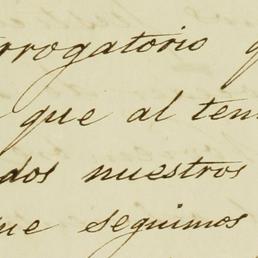 rrogatorio q
que al ten
dos nuestros
ue seguimos